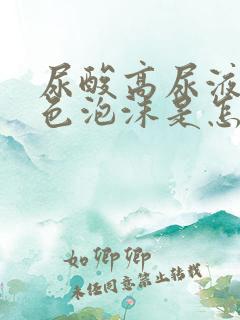 尿酸高尿液
色泡沫是怎
如卿卿
未经同意禁止转载